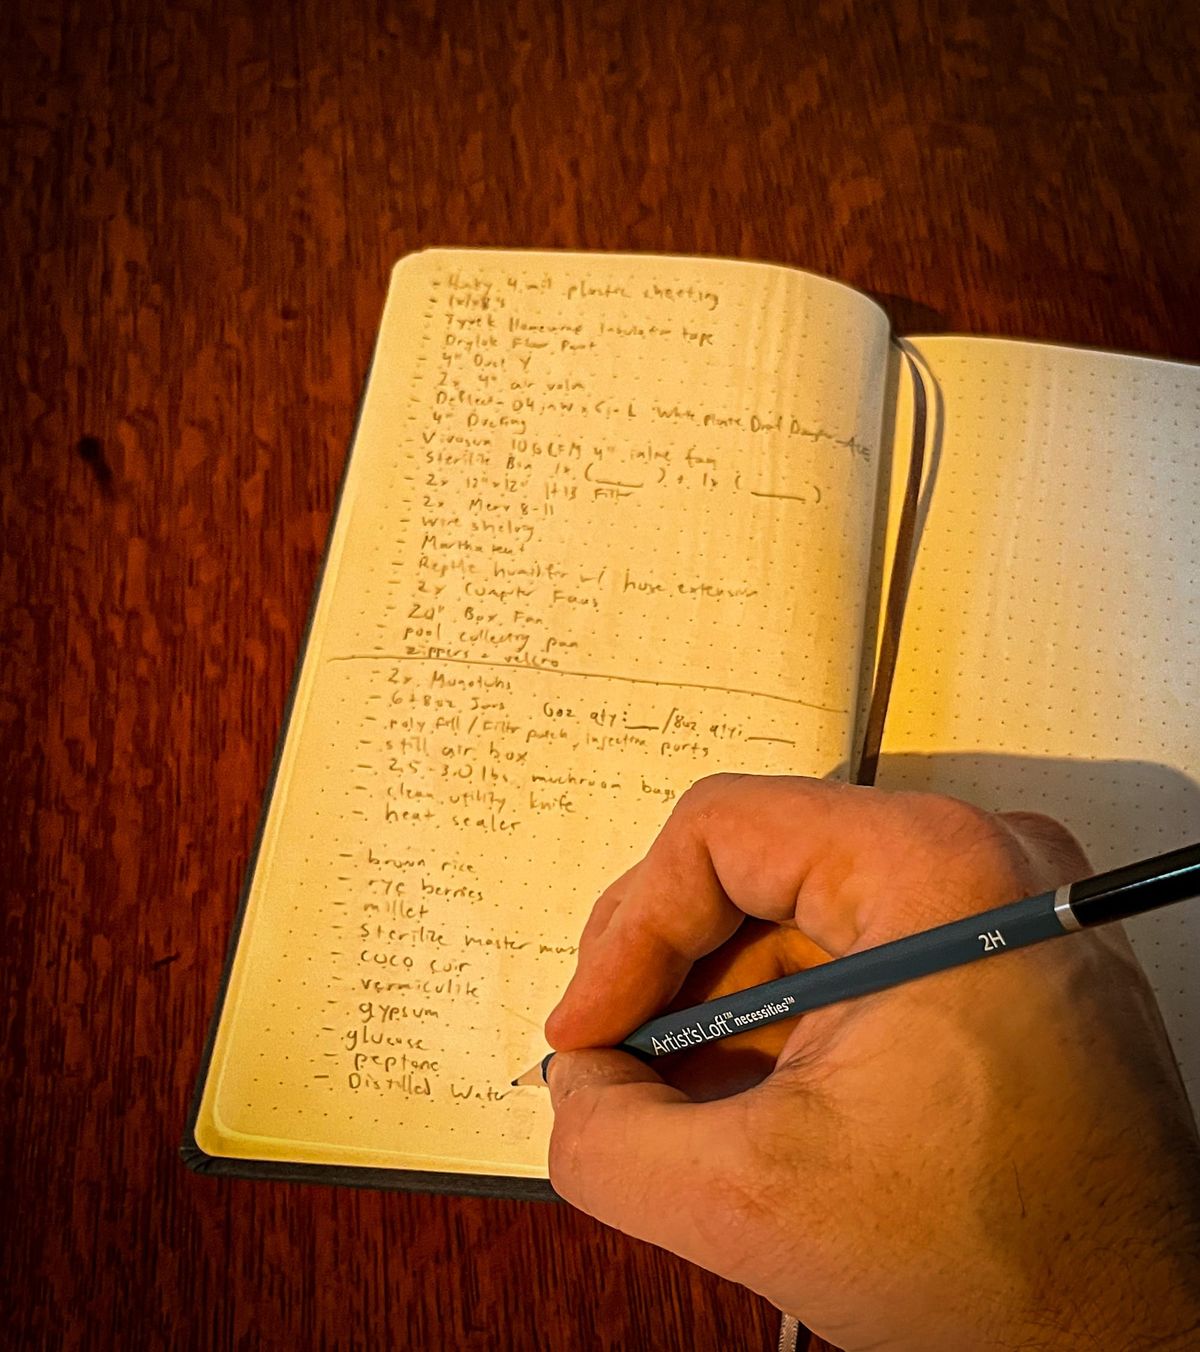 - Husky 4 mil plastic sheeting
- 1x1x8's
- Tyvek Homewrap Insulation tape
- Drylok Floor Paint
- 4" Duct Y
- 2x 4" air
- Deflect-o 4 in W x 6 in L White Plastic Duct Damper - ACE
- 4" Ducting
- Vivosun CFM 4" inline fan
- Sterilite Bin 1x ( ___ ) + 1x ( ___ )
- 2x 12"x12" H13 Filter
- 2x Merv 8-11
- wire shelving
- Martha tent
- Reptile humidifier w/ hose extension
- 2x Computer Fans
- 20" Box Fan
- pool collecting pan
- zippers + velcro
- 2x Monotubs
- 6+8oz Jars 6oz qty: ___ / 8oz qty: ___
- poly fill / filter patch, injection ports
- still air box
- 2.5-3.0 lbs. mushroom bags
- clean utility knife
- heat sealer
- brown rice
- rye berries
- millet
- sterilize master mix
- coco coir
- vermiculite
- gypsum
- glucose
- peptone
- Distilled Water
Artist's Loft™ necessities™ 2H